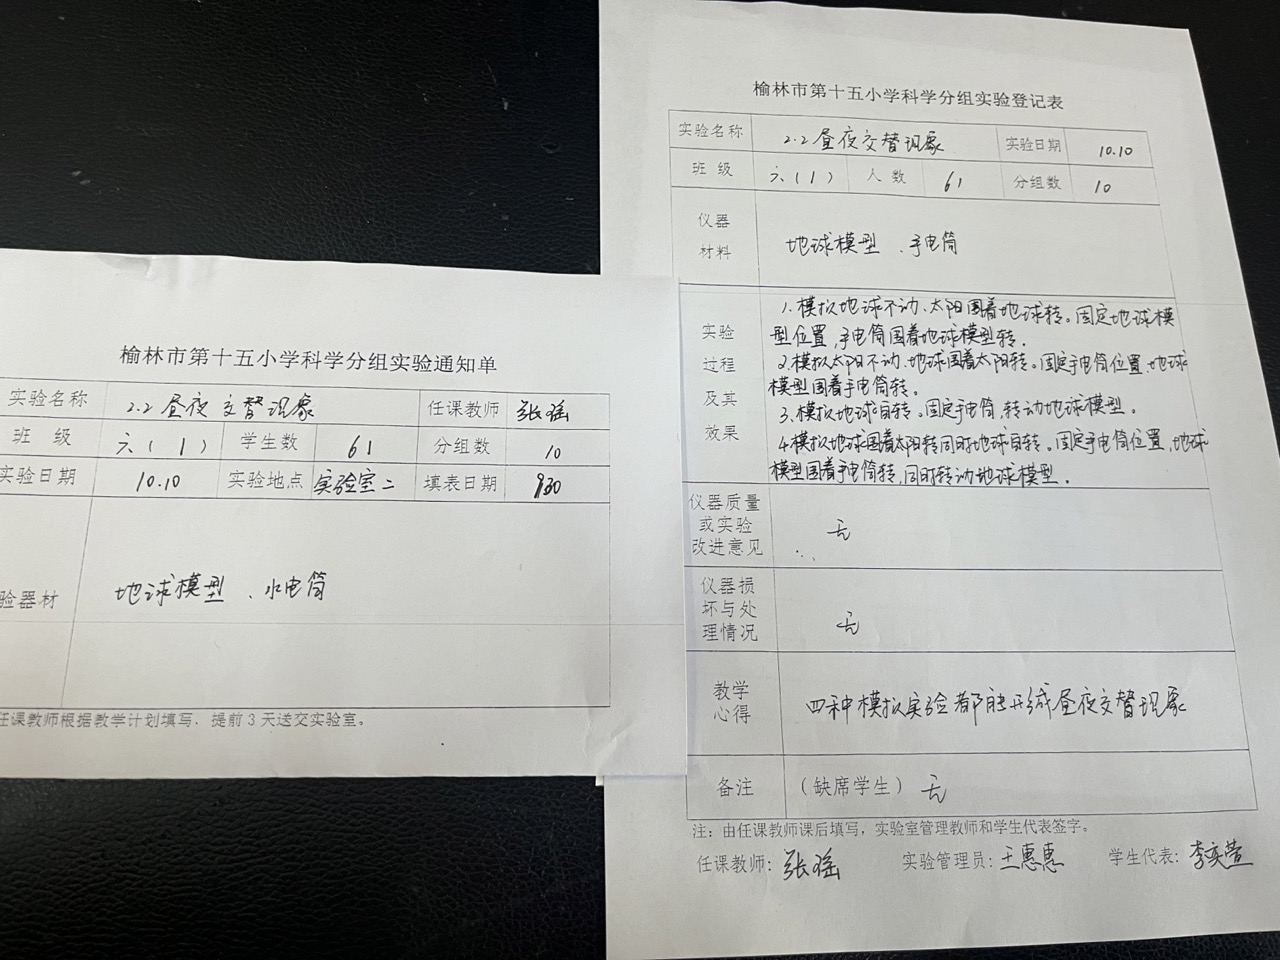 榆林市第十五小学科学分组实验通知单
实验名称 2.2昼夜交替现象 任课教师 张瑶
班 级 六(1) 学生数 61 分组数 10
实验日期 10.10 实验地点 实验室二 填表日期 9.30
验器材 地球模型、水电筒
任课教师根据教学计划填写，提前3天送交实验室。
榆林市第十五小学科学分组实验登记表
实验名称 2.2昼夜交替现象 实验日期 10.10
班 级 六(1) 人 数 61 分组数 10
仪器
材料
地球模型、手电筒
实验
过程
及其
效果
1.模拟地球不动、太阳围着地球转。固定地球模
型位置,手电筒围着地球模型转.
2.模拟太阳不动、地球围着太阳转。固定手电筒位置,地球
模型围着手电筒转.
3.模拟地球自转。固定手电筒,转动地球模型。
4.模拟地球围着太阳转同时地球自转。固定手电筒位置,地球
模型围着手电筒转,同时转动地球模型.
仪器质量
或实验
改进意见
无
仪器损
坏与处
理情况
无
教学
心得
四种模拟实验都能形成昼夜交替现象
备注 (缺席学生) 无
注：由任课教师课后填写，实验室管理教师和学生代表签字。
任课教师：张瑶 实验管理员：王惠惠 学生代表：李奕萱